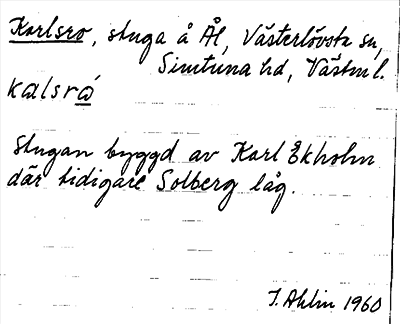 Karlsro, stuga å Ål, Västerlövsta sn,
Simtuna hd, Västml.
kalsrå
Stugan byggd av Karl Ekholm
där tidigare Solberg låg.
I. Ahlin 1960